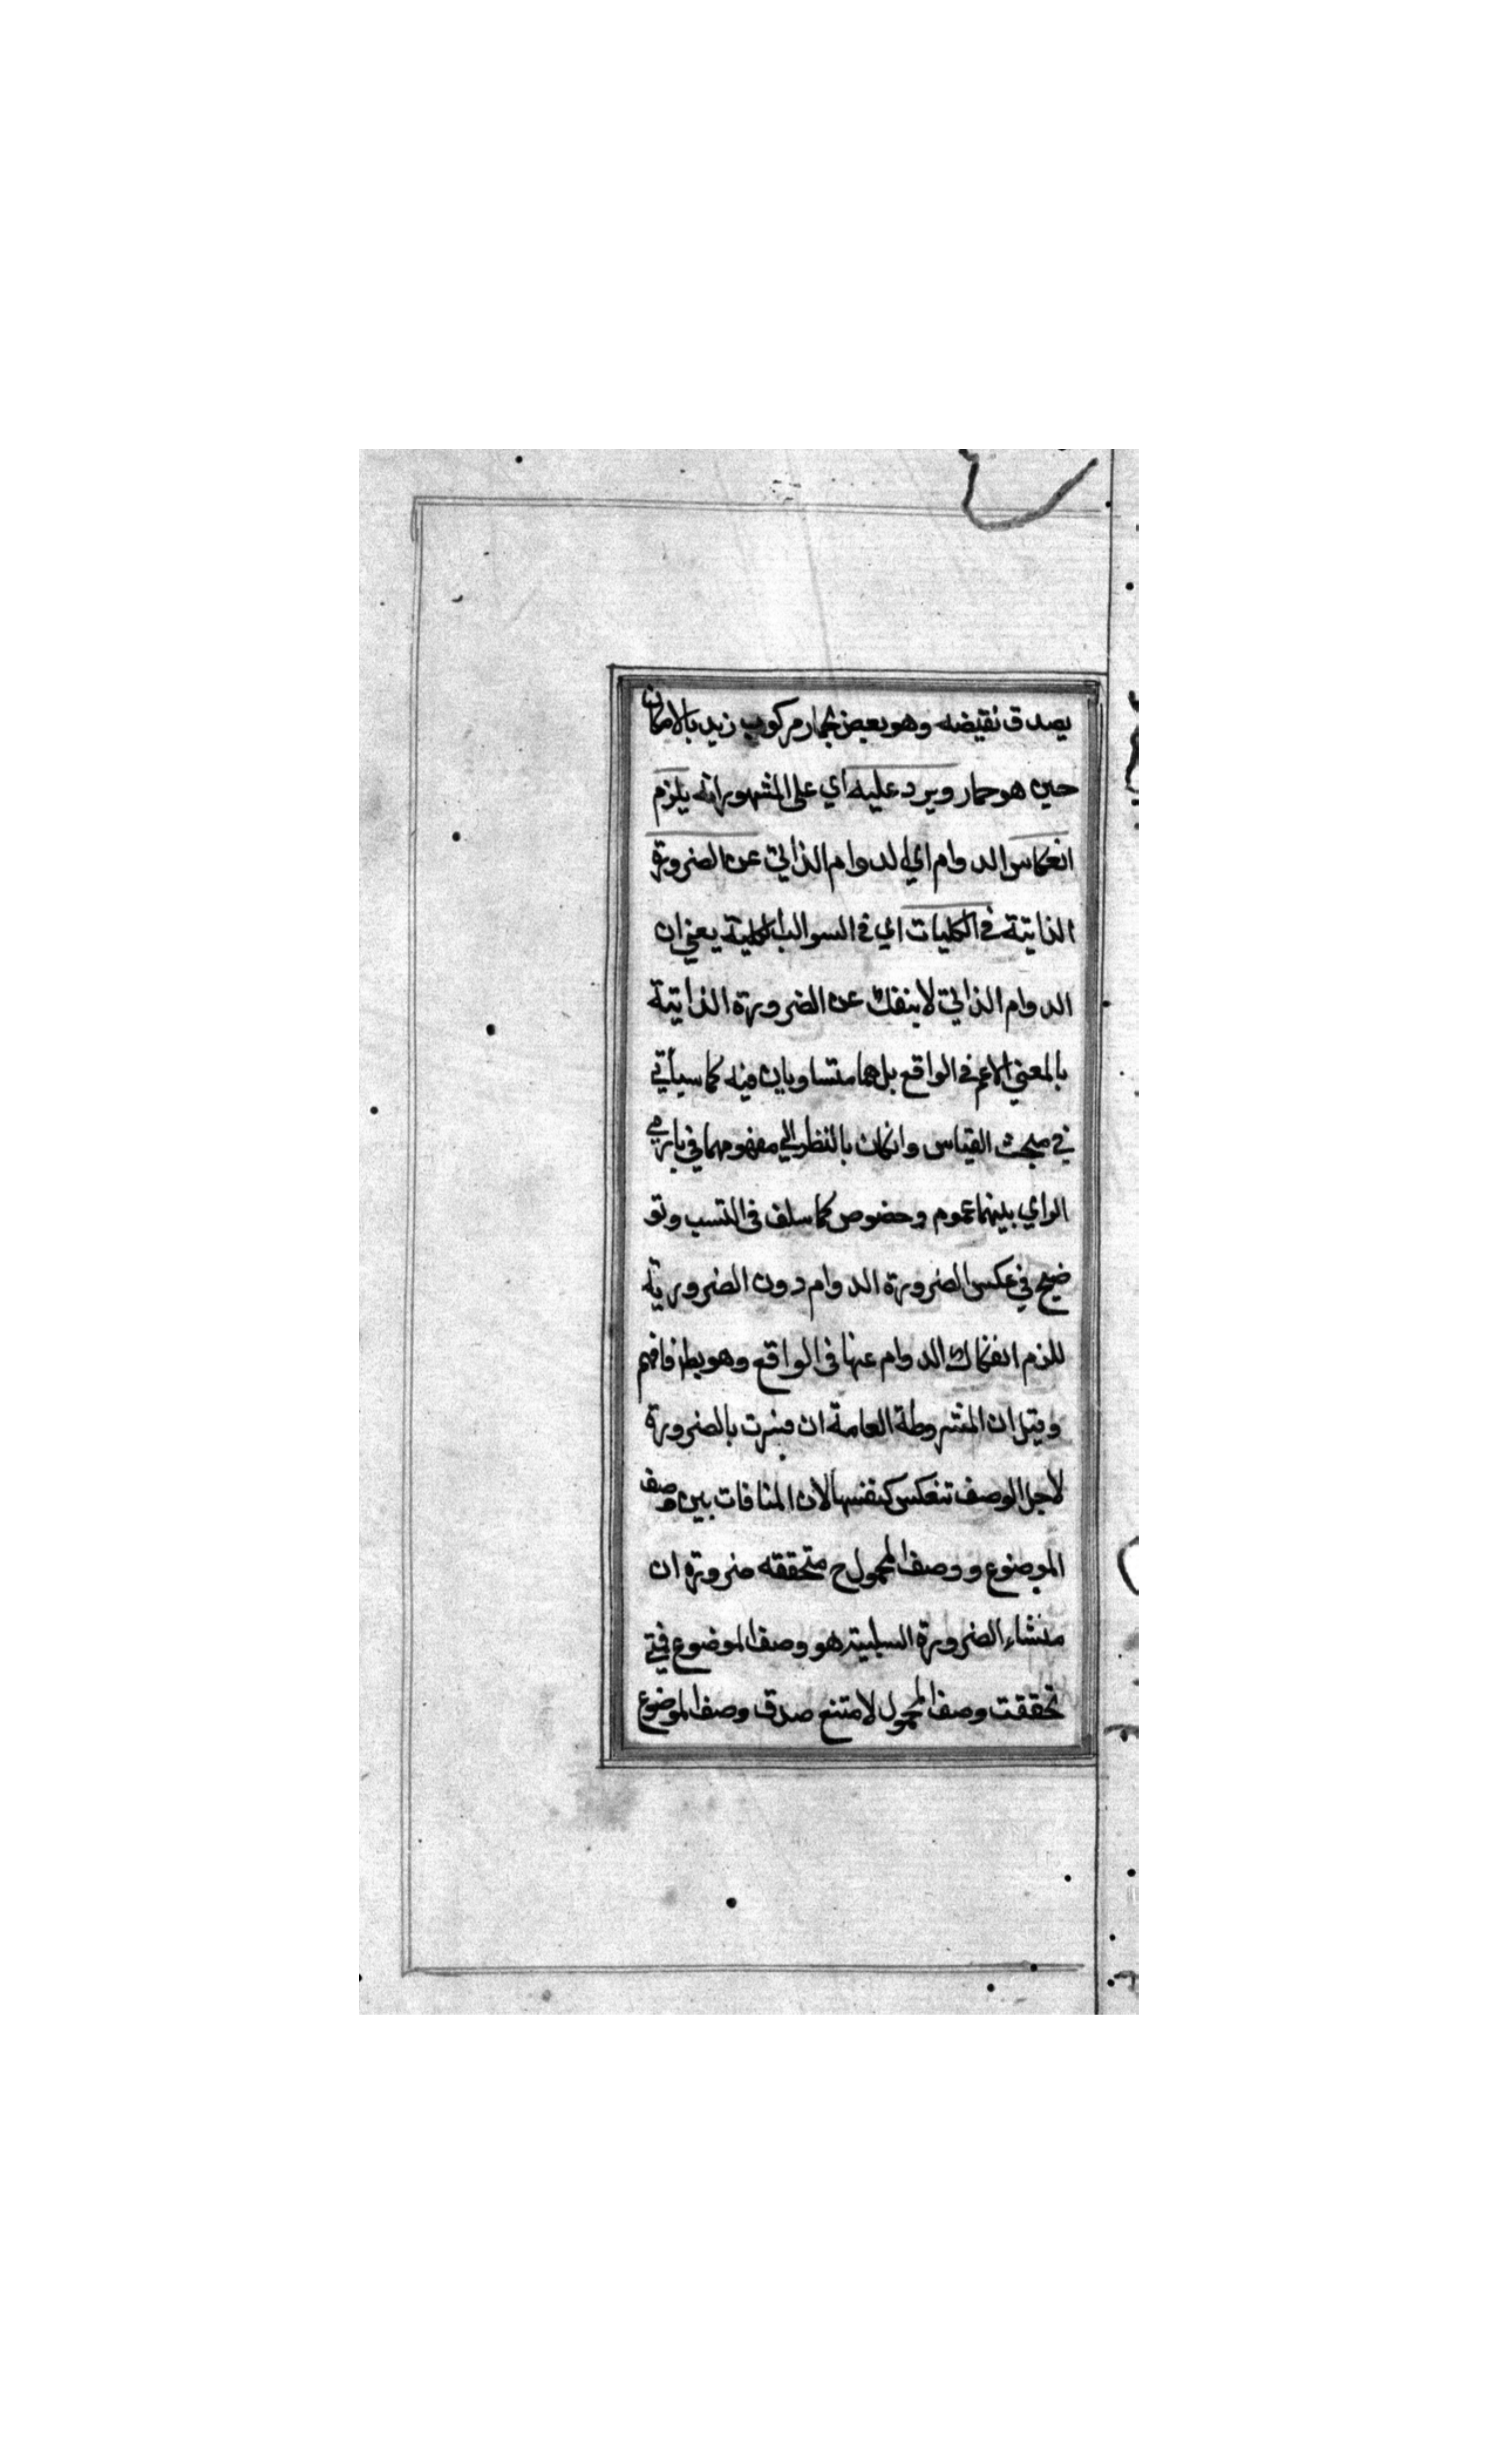 يصدق نقيضه وهو بعض حمار مركوب زيد بالامكان
حين هو حمار ويرد عليه اي على المشهور انه يلزم
انعكاس الدوام اي الدوام الذاتي عن الضرورة
الذاتية في الكليات اي في السوالب الكلية يعني ان
الدوام الذاتي لا ينفك عن الضرورة الذاتية
بالمعني الاعم في الواقع بل هما متساويان فيه كما سيأتي
في مبحث القياس وانكان بالنظر الي مفهومهما في بادي
الراي بينهما عموم وخصوص كما سلف في النسب وتو
ضيح في عكس الضرورة الدوام دون الضرورية
للزم انفكاك الدوام عنها في الواقع وهو بط فافهم
وقيل ان المشروطة العامة ان فسرت بالضرورة
لاجل الوصف تنعكس كنفسها لان المنافات بين وصف
الموضوع ووصف المحمول ح متحققه ضرورة ان
منشاء الضرورة السلبية هو وصف الموضوع فمتي
تحققت وصف المحمول لامتنع صدق وصف الموضوع